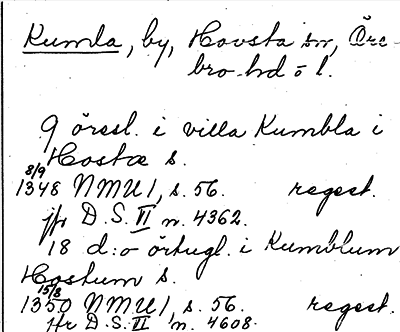 Kumla, by, Hovsta sn, Öre-
bro hd o l.
9 öressl. i villa Kumbla i
Hostæ s.
8/9
1348 NMU 1, s. 56. regest.
jfr D.S. VI n. 4362.
18 d:o örtugl. i Kumblum
Hostum s.
15/8
1350 NMU 1, s. 56. regest.
jfr D.S. VI n. 4608.